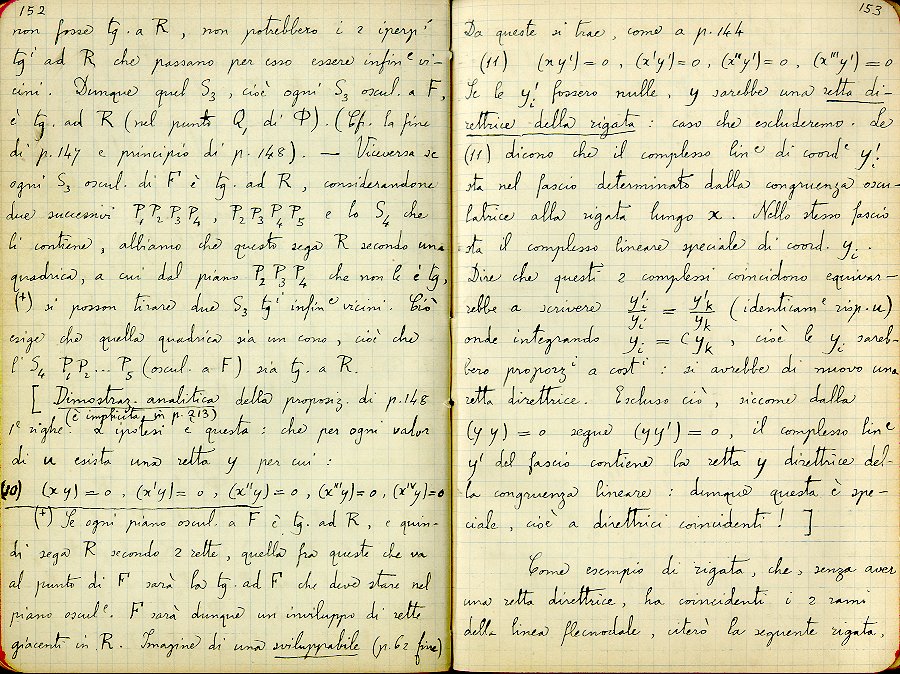 152
non fosse tg. a R, non potrebbero i 2 iperpⁱ
tgⁱ ad R che passano per esso essere infinᵉ vi-
cini. Dunque quel S₃, cioè ogni S₃ oscul. a F,
è tg. ad R (nel punto Q, di Φ). (Cf. la fine
di p.147 e principio di p.148). — Viceversa se
ogni S₃ oscul. di F è tg. ad R, considerandone
due successivi P₁P₂P₃P₄, P₂P₃P₄P₅ e lo S₄ che
li contiene, abbiamo che questo sega R secondo una
quadrica, a cui dal piano P₂P₃P₄ che non le è tg,
(+) si posson tirare due S₃ tgⁱ infinᵉ vicini. Ciò
esige che quella quadrica sia un cono, cioè che
l'S₄ P₁P₂...P₅ (oscul. a F) sia tg. a R.
[ Dimostraz. analitica della proposiz. di p.148
(è implicita in p. 213)
1ᵉ righe. L'ipotesi è questa: che per ogni valor
di u esista una retta y per cui:
(10) (xy)=0, (x'y)=0, (x''y)=0, (x'''y)=0, (xᴵⱽy)=0
(+) Se ogni piano oscul. a F è tg. ad R, e quin-
di sega R secondo 2 rette, quella fra queste che va
al punto di F sarà la tg. ad F che deve stare nel
piano osculᵉ. F sarà dunque un inviluppo di rette
giacenti in R. Imagine di una sviluppabile (p.62 fine)
153
Da queste si trae, come a p.144
(11) (xy')=0, (x'y')=0, (x''y')=0, (x'''y')=0
Se le y'ᵢ fossero nulle, y sarebbe una retta di-
rettrice della rigata: caso che escluderemo. Le
(11) dicono che il complesso linᵉ di coordᵉ y'ᵢ
sta nel fascio determinato dalla congruenza oscu-
latrice alla rigata lungo x. Nello stesso fascio
sta il complesso lineare speciale di coord. yᵢ.
Dire che questi 2 complessi coincidono equivar-
rebbe a scrivere y'ᵢ/yᵢ = y'ₖ/yₖ (identicamᵉ risp. u)
onde integrando yᵢ = C yₖ, cioè le yᵢ sareb-
bero proporzⁱ a costⁱ: si avrebbe di nuovo una
retta direttrice. Escluso ciò, siccome dalla
(yy)=0 segue (yy')=0, il complesso linᵉ
y' del fascio contiene la retta y direttrice del-
la congruenza lineare: dunque questa è spe-
ciale, cioè a direttrici coincidenti! ]
Come esempio di rigata, che, senza aver
una retta direttrice, ha coincidenti i 2 rami
della linea flecnodale, citerò la seguente rigata,